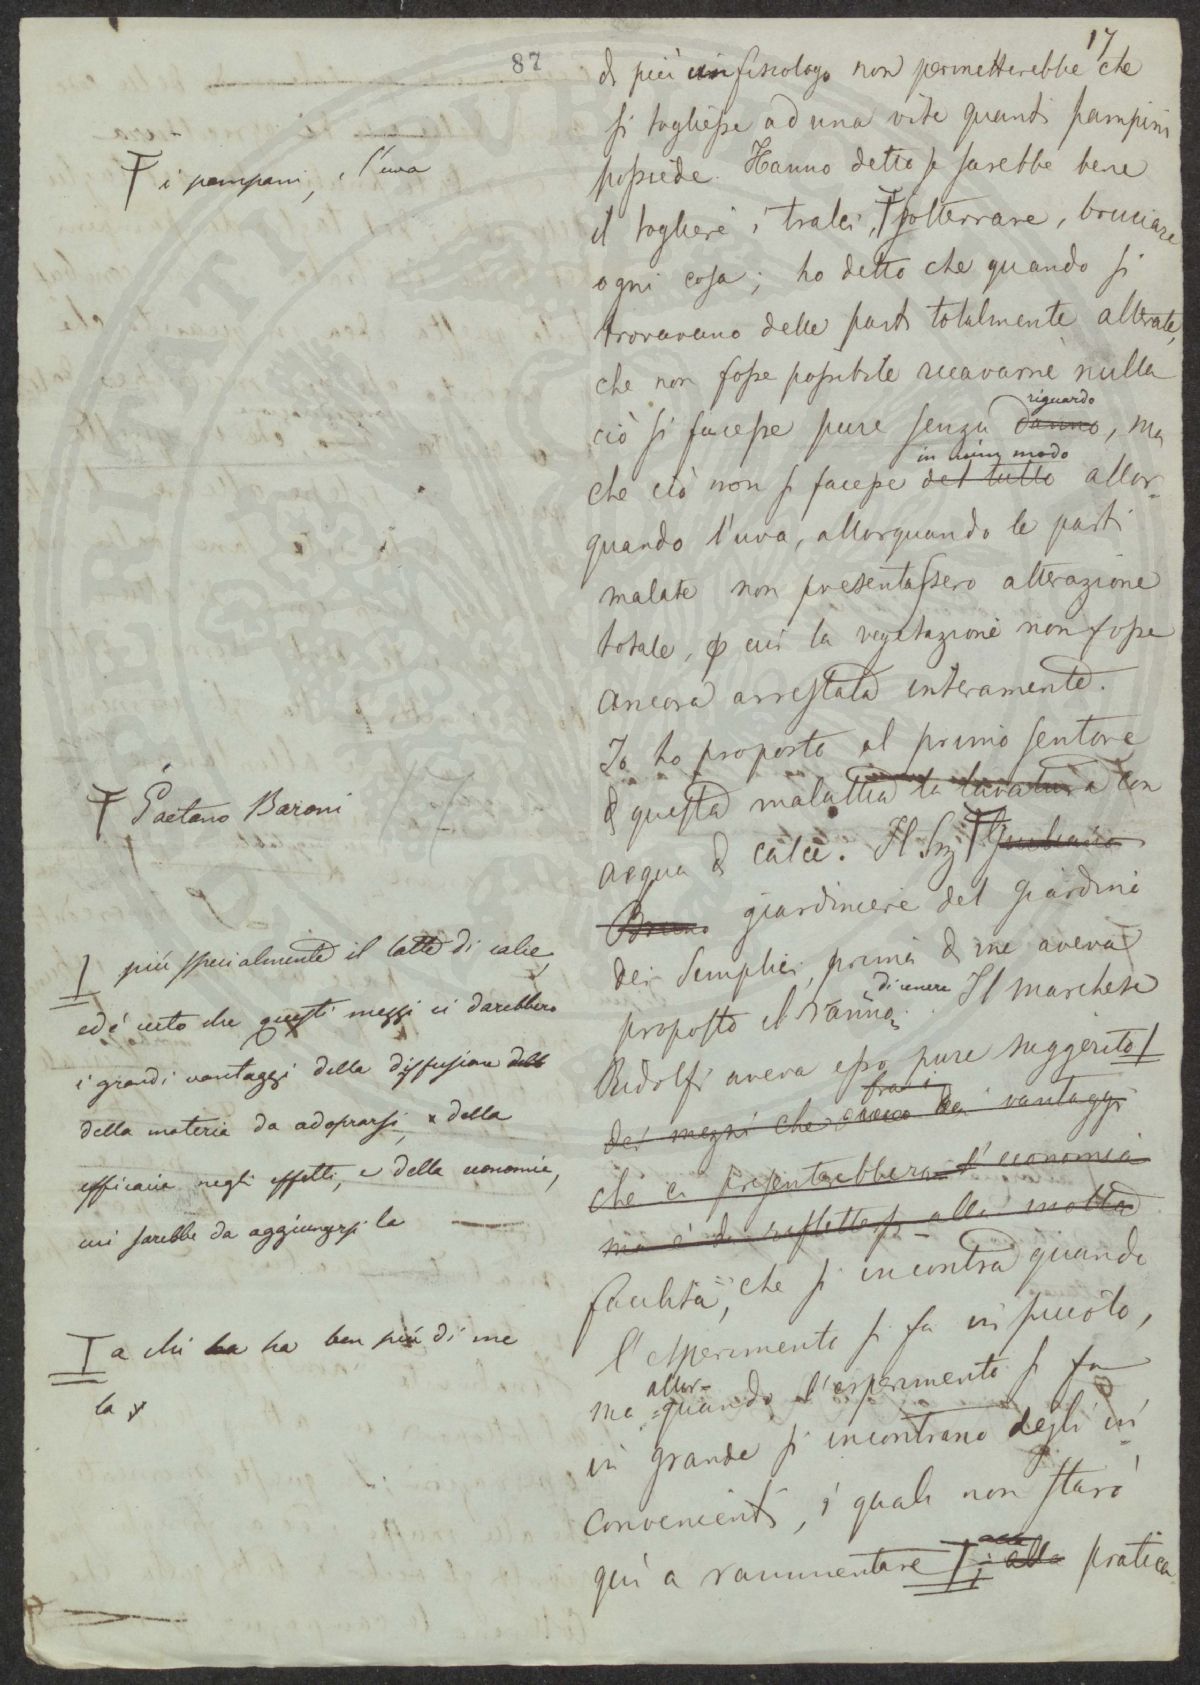 17
87
di più un fisiologo non permetterebbe che
si togliesse ad una vite quanti pampini
possiede. Hanno detto si sarebbe bene
il togliere i tralci, sotterrare, bruciare
ogni cosa; ho detto che quando si
trovavano delle parti totalmente alterate,
che non fosse possibile ricavarne nulla
riguardo
ciò si facesse pure senza danno, ma
in niun modo
che ciò non si facesse del tutto allor-
quando l'uva, allorquando le parti
malate non presentassero alterazione
totale, o cui la vegetazione non fosse
ancora arrestata interamente.
Io ho proposto al primo sentore
di questa malattia la lavatura con
acqua di calce. Il Sig
Bruno giardiniere del giardino
dei Semplici, prima di me aveva
di cenere
proposto il ranno. Il marchese
Ridolfi aveva esso pure suggerito
dei mezzi che dei vantaggi
che ci presenterebbero l'economia
ma è da riflettersi alla molta
facilità, che si incontra quando
l'esperimento si fa in piccolo,
allor-
ma quando l'esperimento si fa
in grande si incontrano degli in-
convenienti, i quali non starò
qui a rammentare; alla pratica
i pampani, l'uva
Gaetano Baroni
più specialmente il latte di calce,
ed è certo che questi mezzi ci darebbero
i grandi vantaggi della diffusione della
della materia da adoprarsi, e della
efficacia negli effetti, e della economia,
cui sarebbe da aggiungersi la
a chi ha ha ben più di me
la